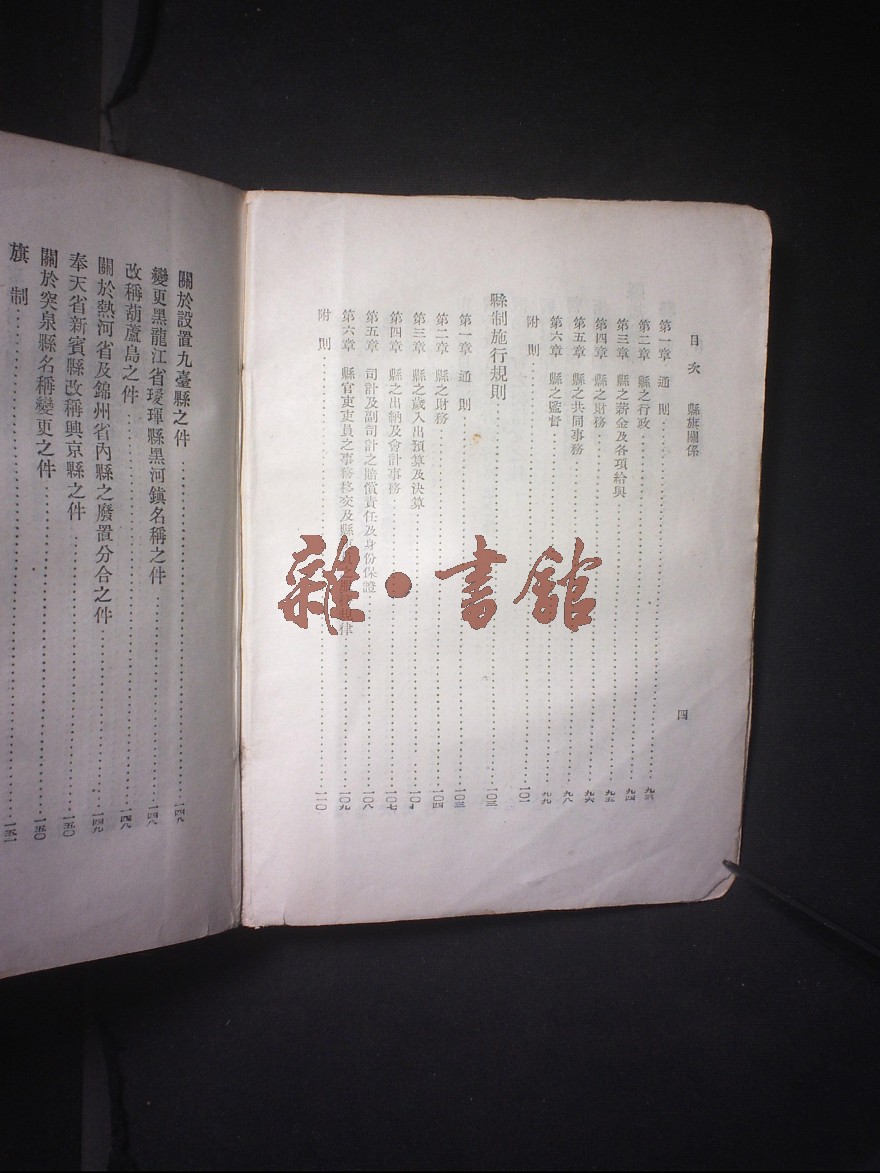 目次 縣旗關係
四
第一章 通則……九三
第二章 縣之行政……九四
第三章 縣之薪金及各項給與……九五
第四章 縣之財務……九六
第五章 縣之共同事務……九八
第六章 縣之監督……九九
附則……一〇一
縣制施行規則……一〇三
第一章 通則……一〇三
第二章 縣之財務……一〇四
第三章 縣之歲入出預算及決算……一〇
第四章 縣之出納及會計事務……一〇七
第五章 司計及副司計之賠償責任及身份保證……一〇八
第六章 縣官吏吏員之事務移交及縣 律……一〇九
附則……一一〇
關於設置九臺縣之件……一四八
變更黑龍江省璦琿縣黑河鎮名稱之件……一四八
改稱葫蘆島之件……一四八
關於熱河省及錦州省內縣之廢置分合之件……一四九
奉天省新賓縣改稱興京縣之件……一五〇
關於突泉縣名稱變更之件……一五〇
旗制……一五一
雜·書館